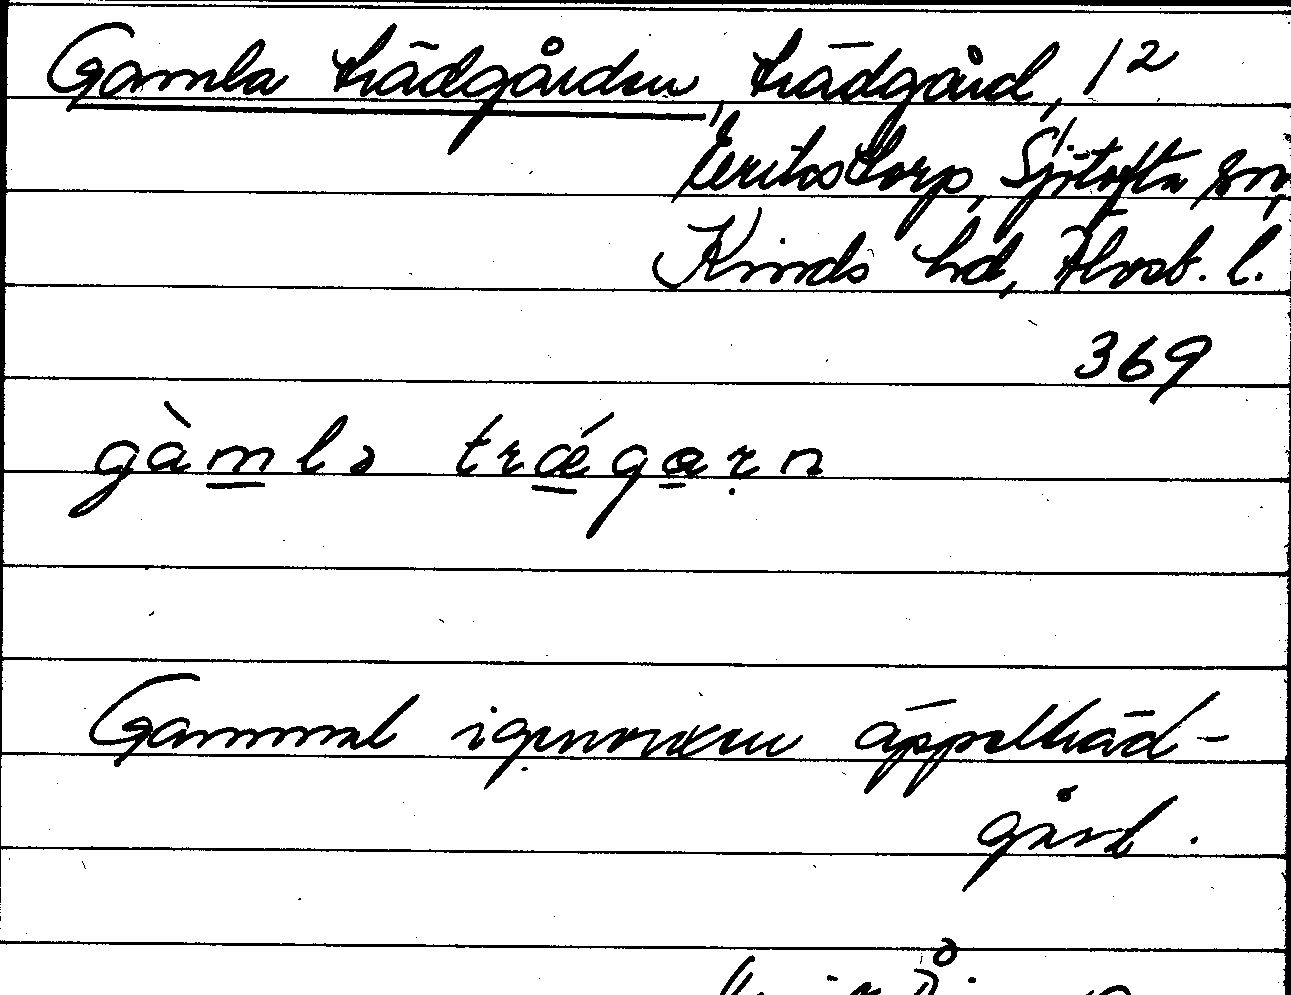 Gamla trädgården, trädgård, 1²
Erikstorp, Sjötofta sn,
Kinds hd, Älvsb. l.
369
gàmlə træ´gar̥n
Gammal igenvuxen äppelträd-
gård.